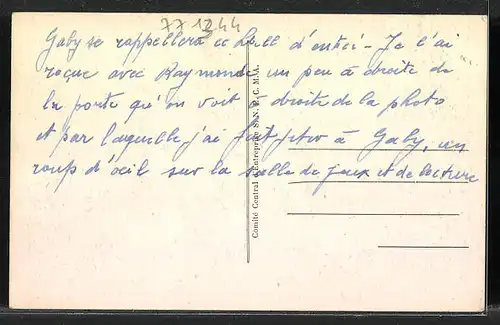 771244
Gaby se rappellera ce hall d'entrée - Je l'ai
reçue avec Raymonde un peu à droite de
la porte qu'on voit à droite de la photo
et par laquelle j'ai fait jeter à Gaby, un
coup d'oeil sur la salle de jeux et de lecture
Comité Central d'Entreprise S. N. E. C. M. A.